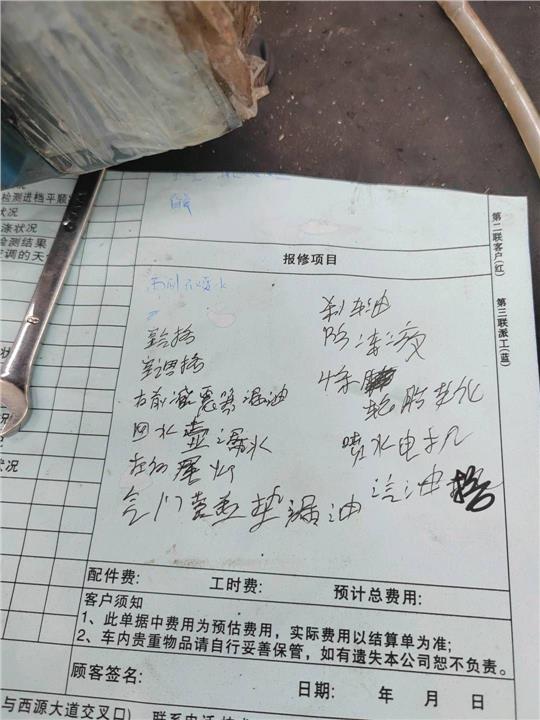 第二联客户(红)
第三联派工(蓝)
检测进档平顺
状况
涤状况
检测结果
报修项目
雨刮不喷水
刹车油
防冻液
空调格
4条
轮胎老化
右前减震器漏油
回水壶漏水
喷水电机
左后尾灯
汽油格
气门室盖垫漏油
配件费: 工时费: 预计总费用:
客户须知
1、此单据中费用为预估费用，实际费用以结算单为准;
2、车内贵重物品请自行妥善保管，如有遗失本公司恕不负责。
顾客签名: 日期: 年 月 日
与西源大道交叉口)